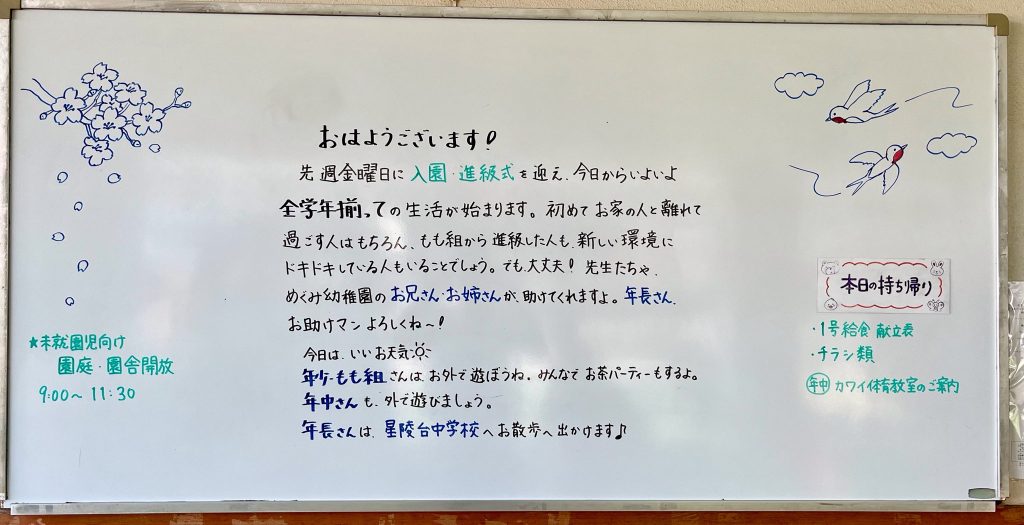 おはようございます!
先週金曜日に入園・進級式を迎え、今日からいよいよ
全学年揃っての生活が始まります。初めてお家の人と離れて
過ごす人はもちろん、もも組から進級した人も、新しい環境に
ドキドキしている人もいることでしょう。でも、大丈夫!先生たちや、
めぐみ幼稚園のお兄さん・お姉さんが、助けてくれますよ。年長さん、
お助けマンよろしくね〜!
今日は、いいお天気
年少・もも組さんは、お外で遊ぼうね。みんなでお茶パーティーもするよ。
年中さんも、外で遊びましょう。
年長さんは、星陵台中学校へお散歩へ出かけます♪
★未就園児向け
園庭・園舎開放
9:00〜11:30
本日の持ち帰り
・1号給食献立表
・チラシ類
年中 カワイ体育教室のご案内